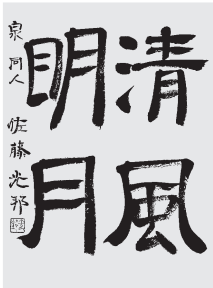 清風
明月
泉同人 佐藤光邦